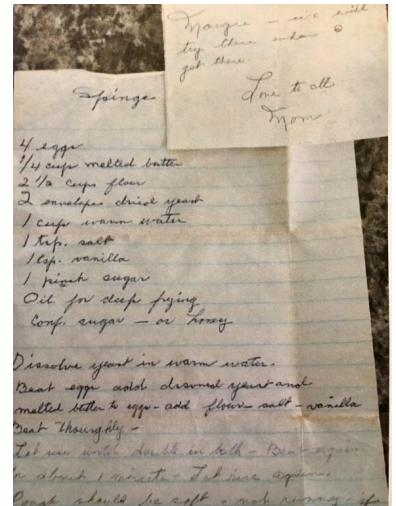 Margie – we will
try these when I
get there.
Love to all
Mom
Spinge
4 eggs
1/4 cup melted butter
2 1/2 cups flour
2 envelopes dried yeast
1 cup warm water
1 tsp. salt
1 tsp. vanilla
1 pinch sugar
Oil for deep frying
Conf. sugar – or honey
Dissolve yeast in warm water.
Beat eggs add dissolved yeast and
melted butter to eggs – add flour – salt – vanilla
Beat thoroughly –
Let rise until double in bulk – Beat again
about 1 minute – Let rise again.
Dough should be soft – not runny – if